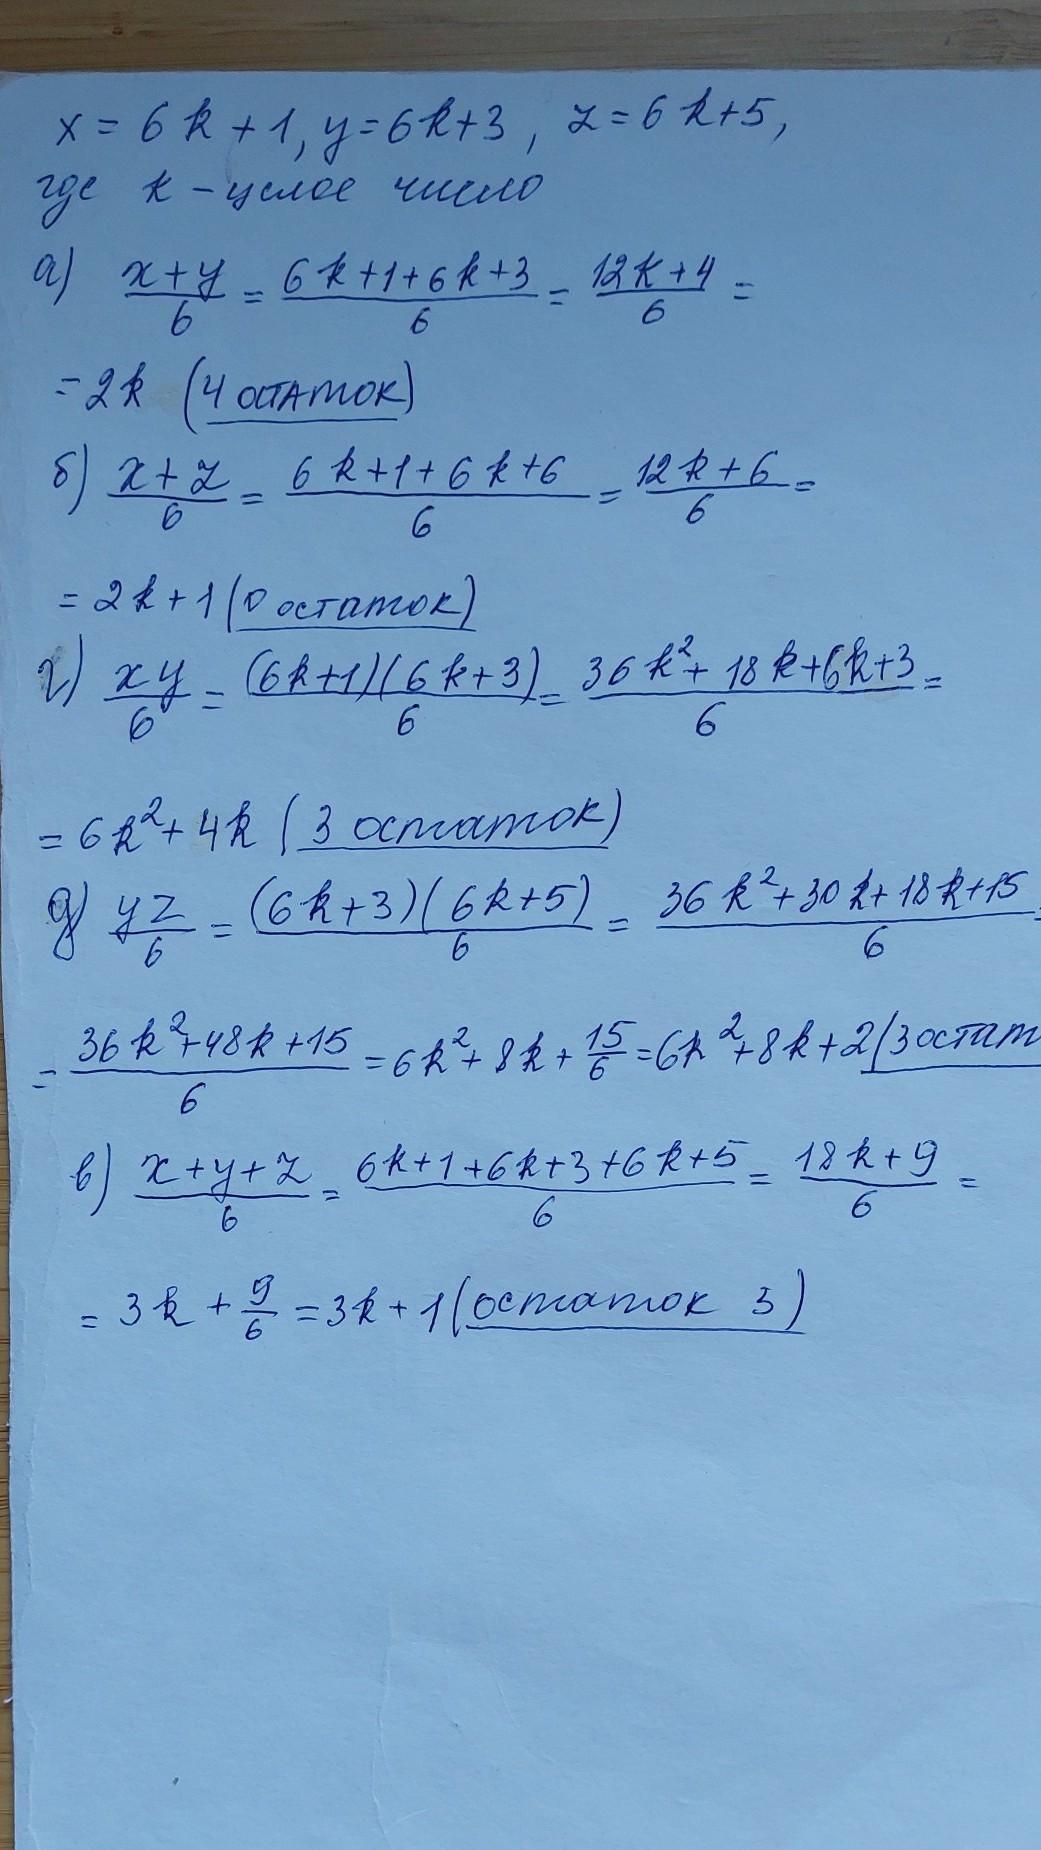 x = 6k + 1, y = 6k + 3, z = 6k + 5,
где k - целое число
а) (x+y)/6 = (6k+1+6k+3)/6 = (12k+4)/6 =
= 2k (4 остаток)
б) (x+z)/6 = (6k+1+6k+6)/6 = (12k+6)/6 =
= 2k+1 (0 остаток)
г) xy/6 = (6k+1)(6k+3)/6 = (36k²+18k+6k+3)/6 =
= 6k²+4k (3 остаток)
д) yz/6 = (6k+3)(6k+5)/6 = (36k²+30k+18k+15)/6 =
= (36k²+48k+15)/6 = 6k²+8k+15/6 = 6k²+8k+2 (3 остат
в) (x+y+z)/6 = (6k+1+6k+3+6k+5)/6 = (18k+9)/6 =
= 3k + 9/6 = 3k+1 (остаток 3)